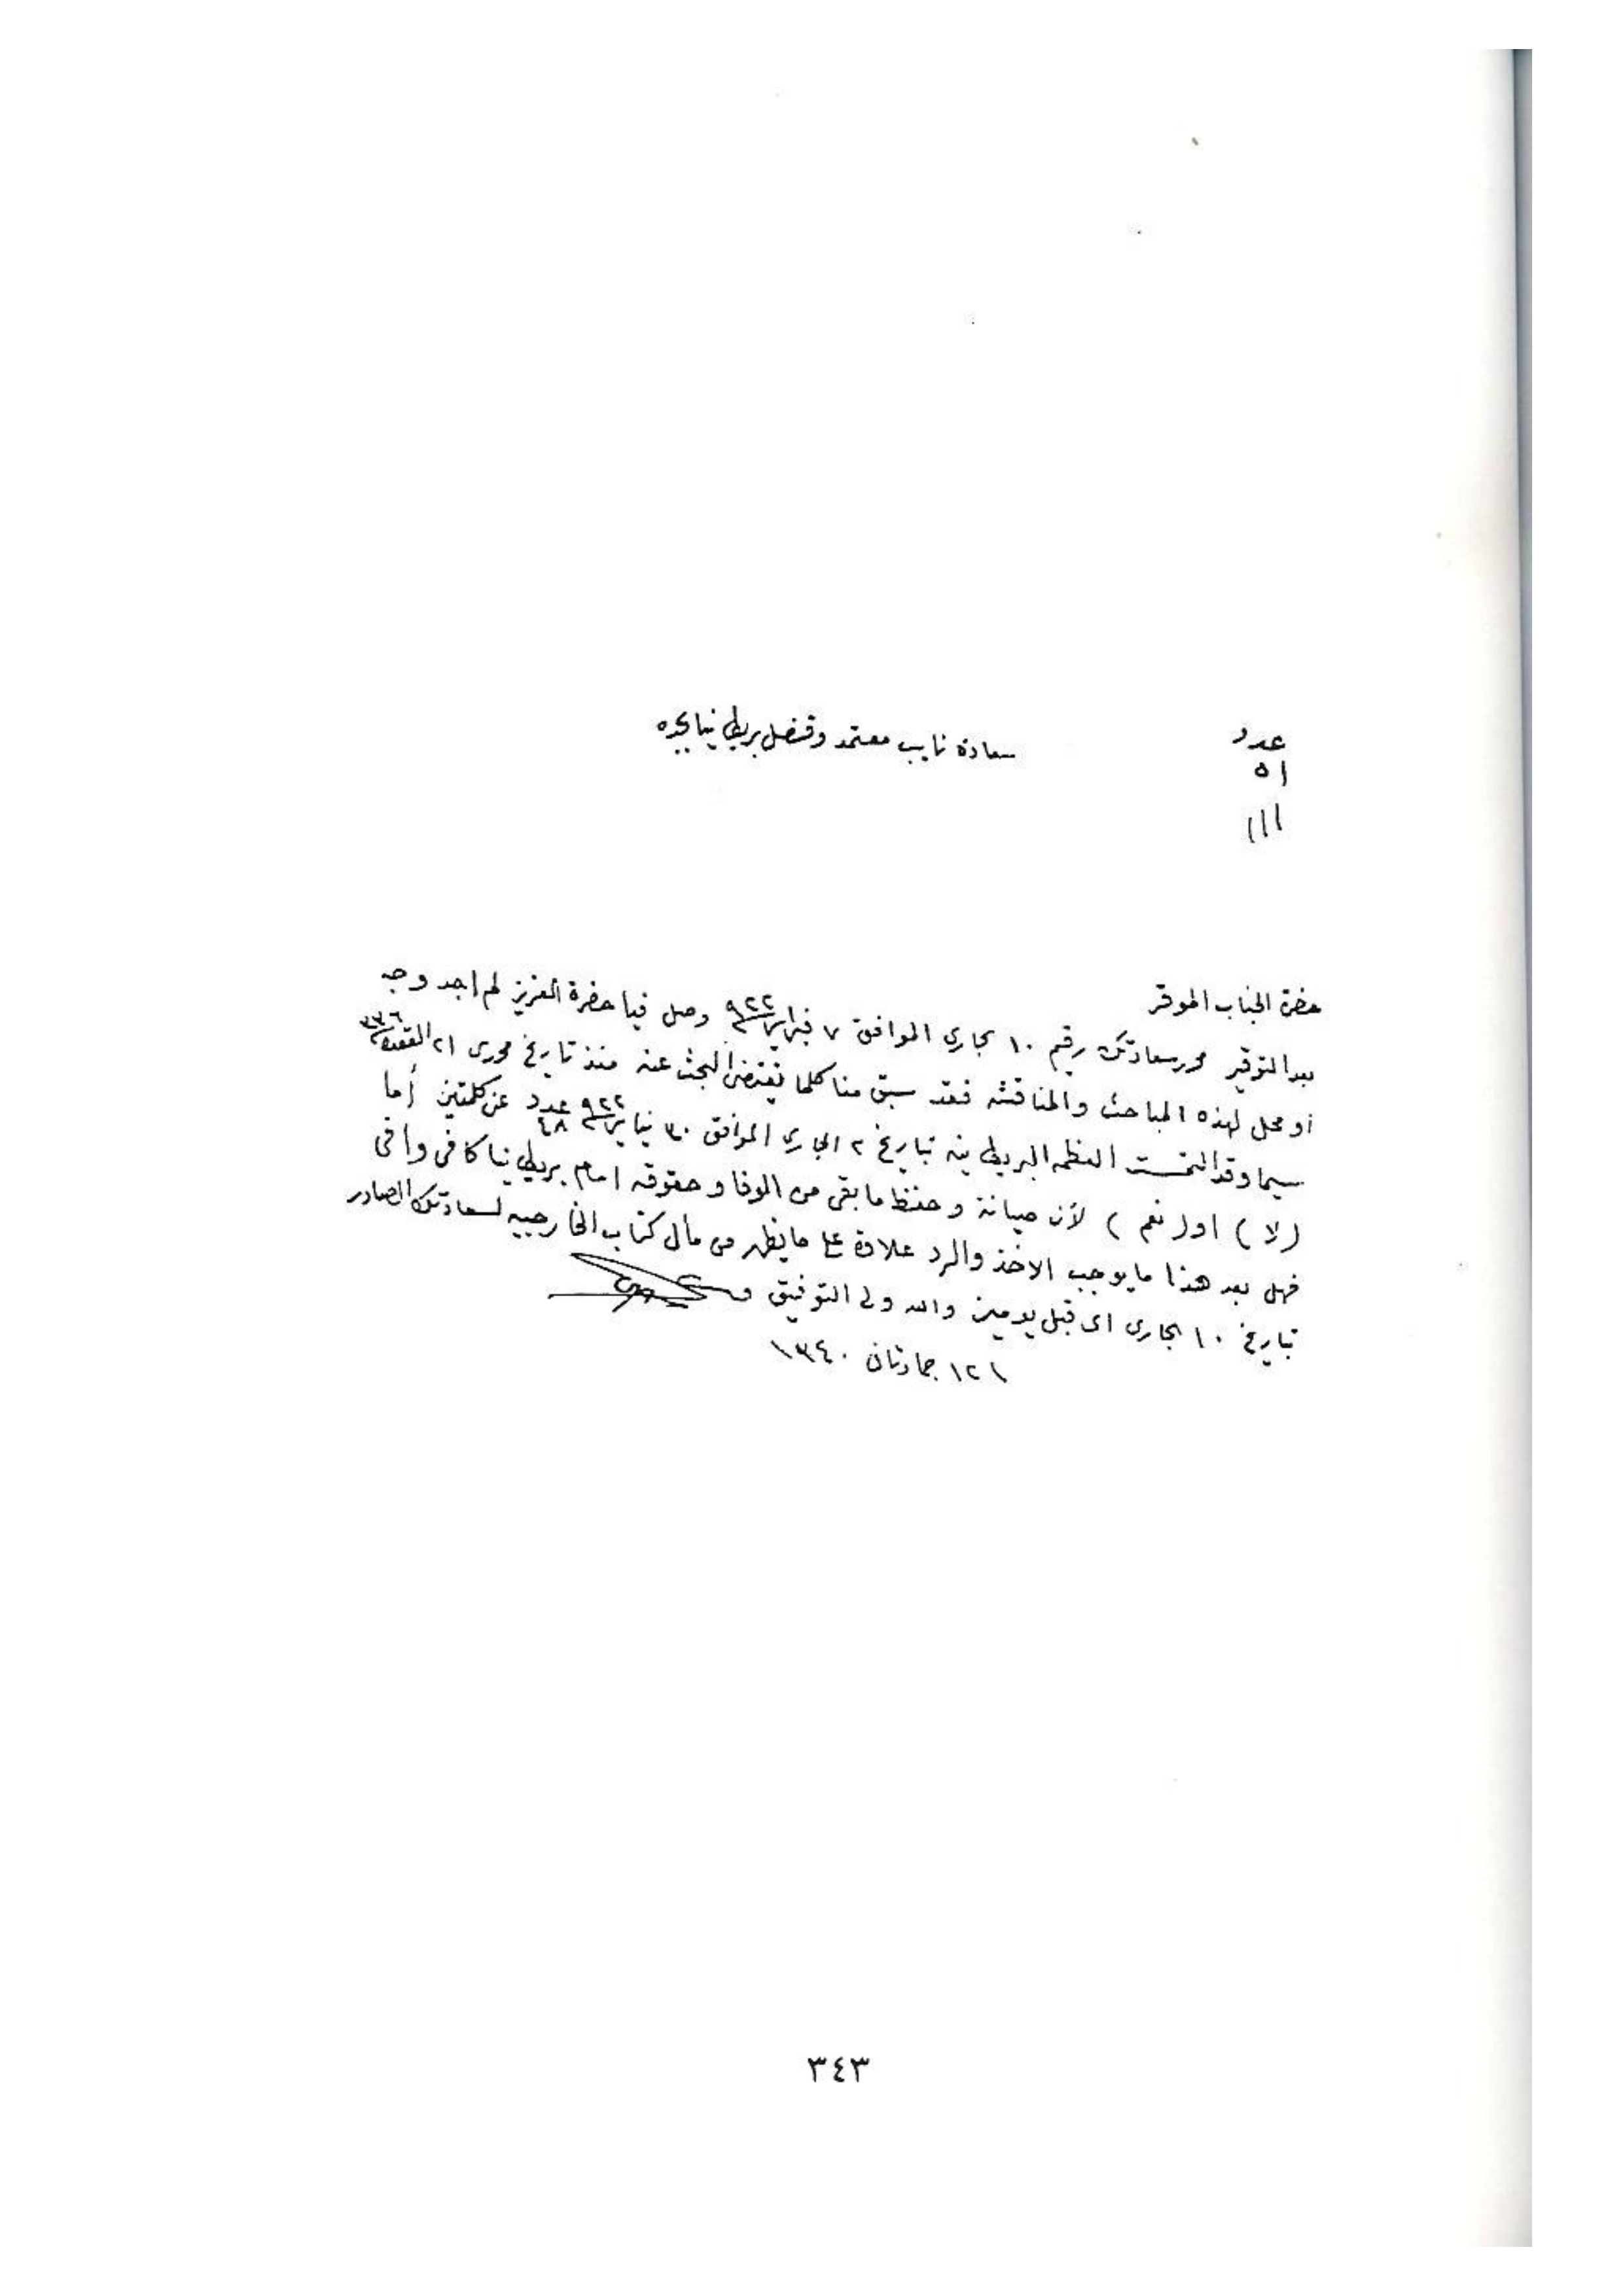 عدد
٥١
١١١
سعادة نايب معتمد وقنصل بريطانيا بجده
حضرة الجناب الموقر
بعد التوقير محرر سعادتك رقيم ١٠ جاري الموافق ٧ فبراير ٩٢٢ وصل فيا حضرة العزيز لم اجد وجه
او محل لهذه المباحث والمناقشه فقد سبق منا كلما يقتضى البحث عنه منذ تاريخ محررى ٢١ القعده ٣٣٦
سيما وقد التمست العظمه البريطانيه بتاريخ ٢ الجاري الموافق ٣٠ يناير ٩٢٢ عدد ٤٨ عن كلمتين أما
(لا) او (نعم) لأن صيانة وحفظ ما بقى من الوفا وحقوقه امام بريطانيا كافى وافى
فهل بعد هذا ما يوجب الاخذ والرد علاوة على ما يظهر من مأل كتاب الخارجيه لسعادتك الصادر
بتاريخ ١٠ الجارى اى قبل يومين والله ولى التوفيق
١٢ جمادثان ١٣٤٠
٣٤٣